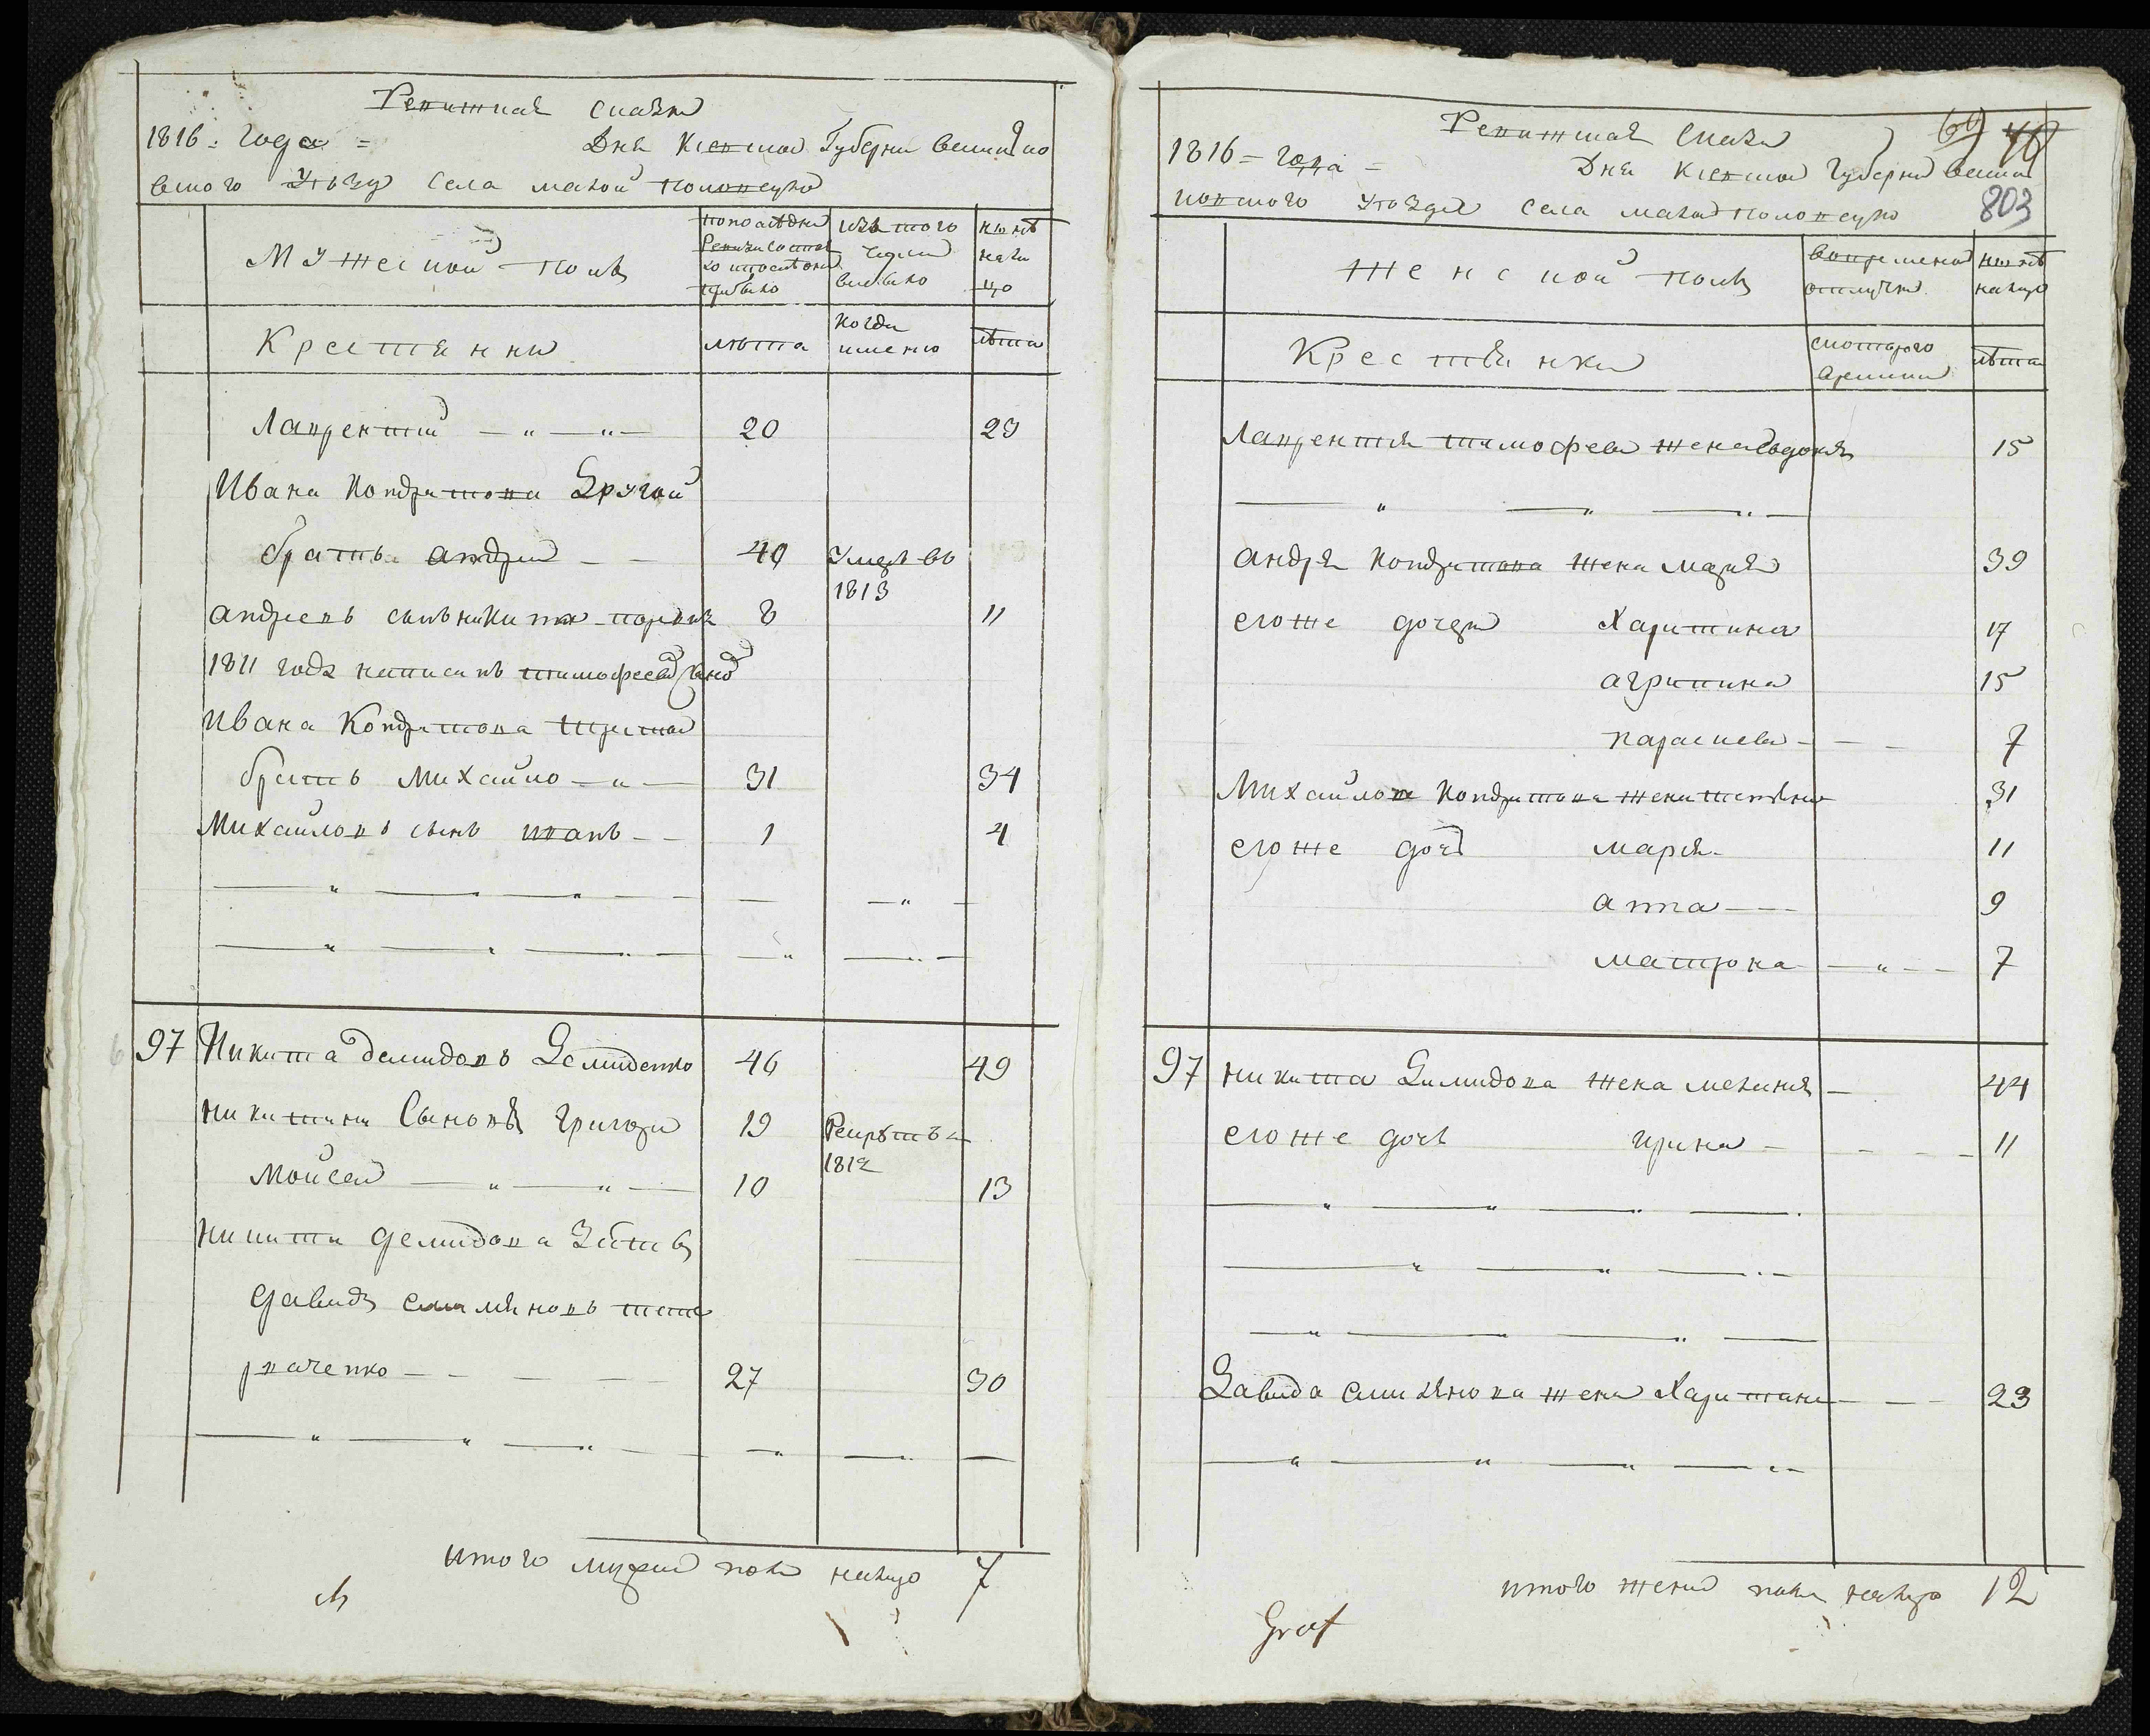 Ревижная сказка
1816: года = Дня Киевской Губернии васильков
вского уѣзду села малой половецко
Мужеской полъ
по последней
Ревизи состоя
ло и после оной
прибыло
изъ того
числа
выбыло
ныне
нали
цо
Крестьянни
лѣта
когда
именно
лѣта
Лаврентий — " — " — 20 23
Ивана кондратова Другой
братъ андрей — — 40 Умеръ въ
1813
андреевъ сынъ никита 8 11
1811 года написанъ тимофеева
Ивана Кондратова третой
братъ Михайло — " — 31 34
Михайловъ сынъ иванъ — — 1 4
97 Никита демидовъ Демиденко 46 49
никитини Сыновя григори 19 Рекрутъ в
1812
Мойсей — " — " — 10 13
никити демидова зять
давидъ емиляновъ тата
рваченко — — 27 30
итого мужеска пола налицо 7
Ревижная сказка
69 70
1816 = года = Дня Киевской Губернии васил
ковского уѣзда села малой половецко
803
Женской полъ
во временной
отлучки
ныне
налицо
Крестьянки
скоторого
времени
лѣта
Лаврентия тимофеева жена евдокия 15
андрея кондратова жена мария 39
егоже дочери Харитина 17
агрипина 15
параскева — — — 7
Михайлова кондратова жена татияна 31
егоже дочь мария 11
анна — — 9
матрона — " — — 7
97 никита Димидова жена мелания — 44
егоже дочь ирина — — — — 11
Давида емилянова жена Харитина — — — 23
итого женска пола налицо 12
Graf